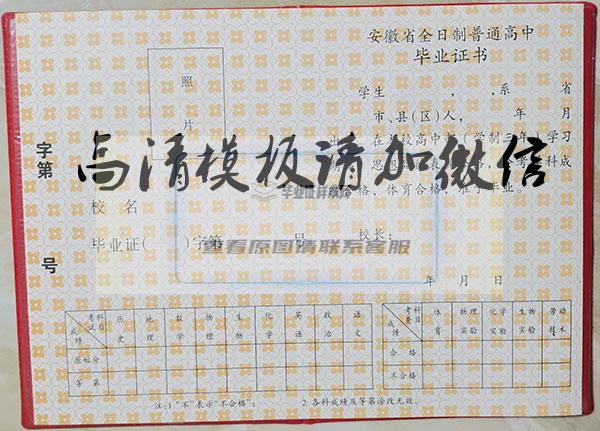 安徽省全日制普通高中
毕业证书
照
片
学生　，　,系　省
市、县(区)人，　年　月
出　在　校高中　(学制三年)学习
思　表　考　科成
格，体育合格，准予毕业。
高清模板请加微信
毕业证样本网
字第
号
校 名
毕业证(　)字第　号
校长：
查看原图请联系客服
年 月 日
科目 考试 成绩 历史 地理 数学 物理 生物 化学 英语 政治 语文
原始分
等 第
科目 考查 成绩 体育 物理实验 化学实验 生物实验 劳动技术
合 格
不合格
注:1."不"表示"不合格"；
2.各科成绩及等第涂改无效。